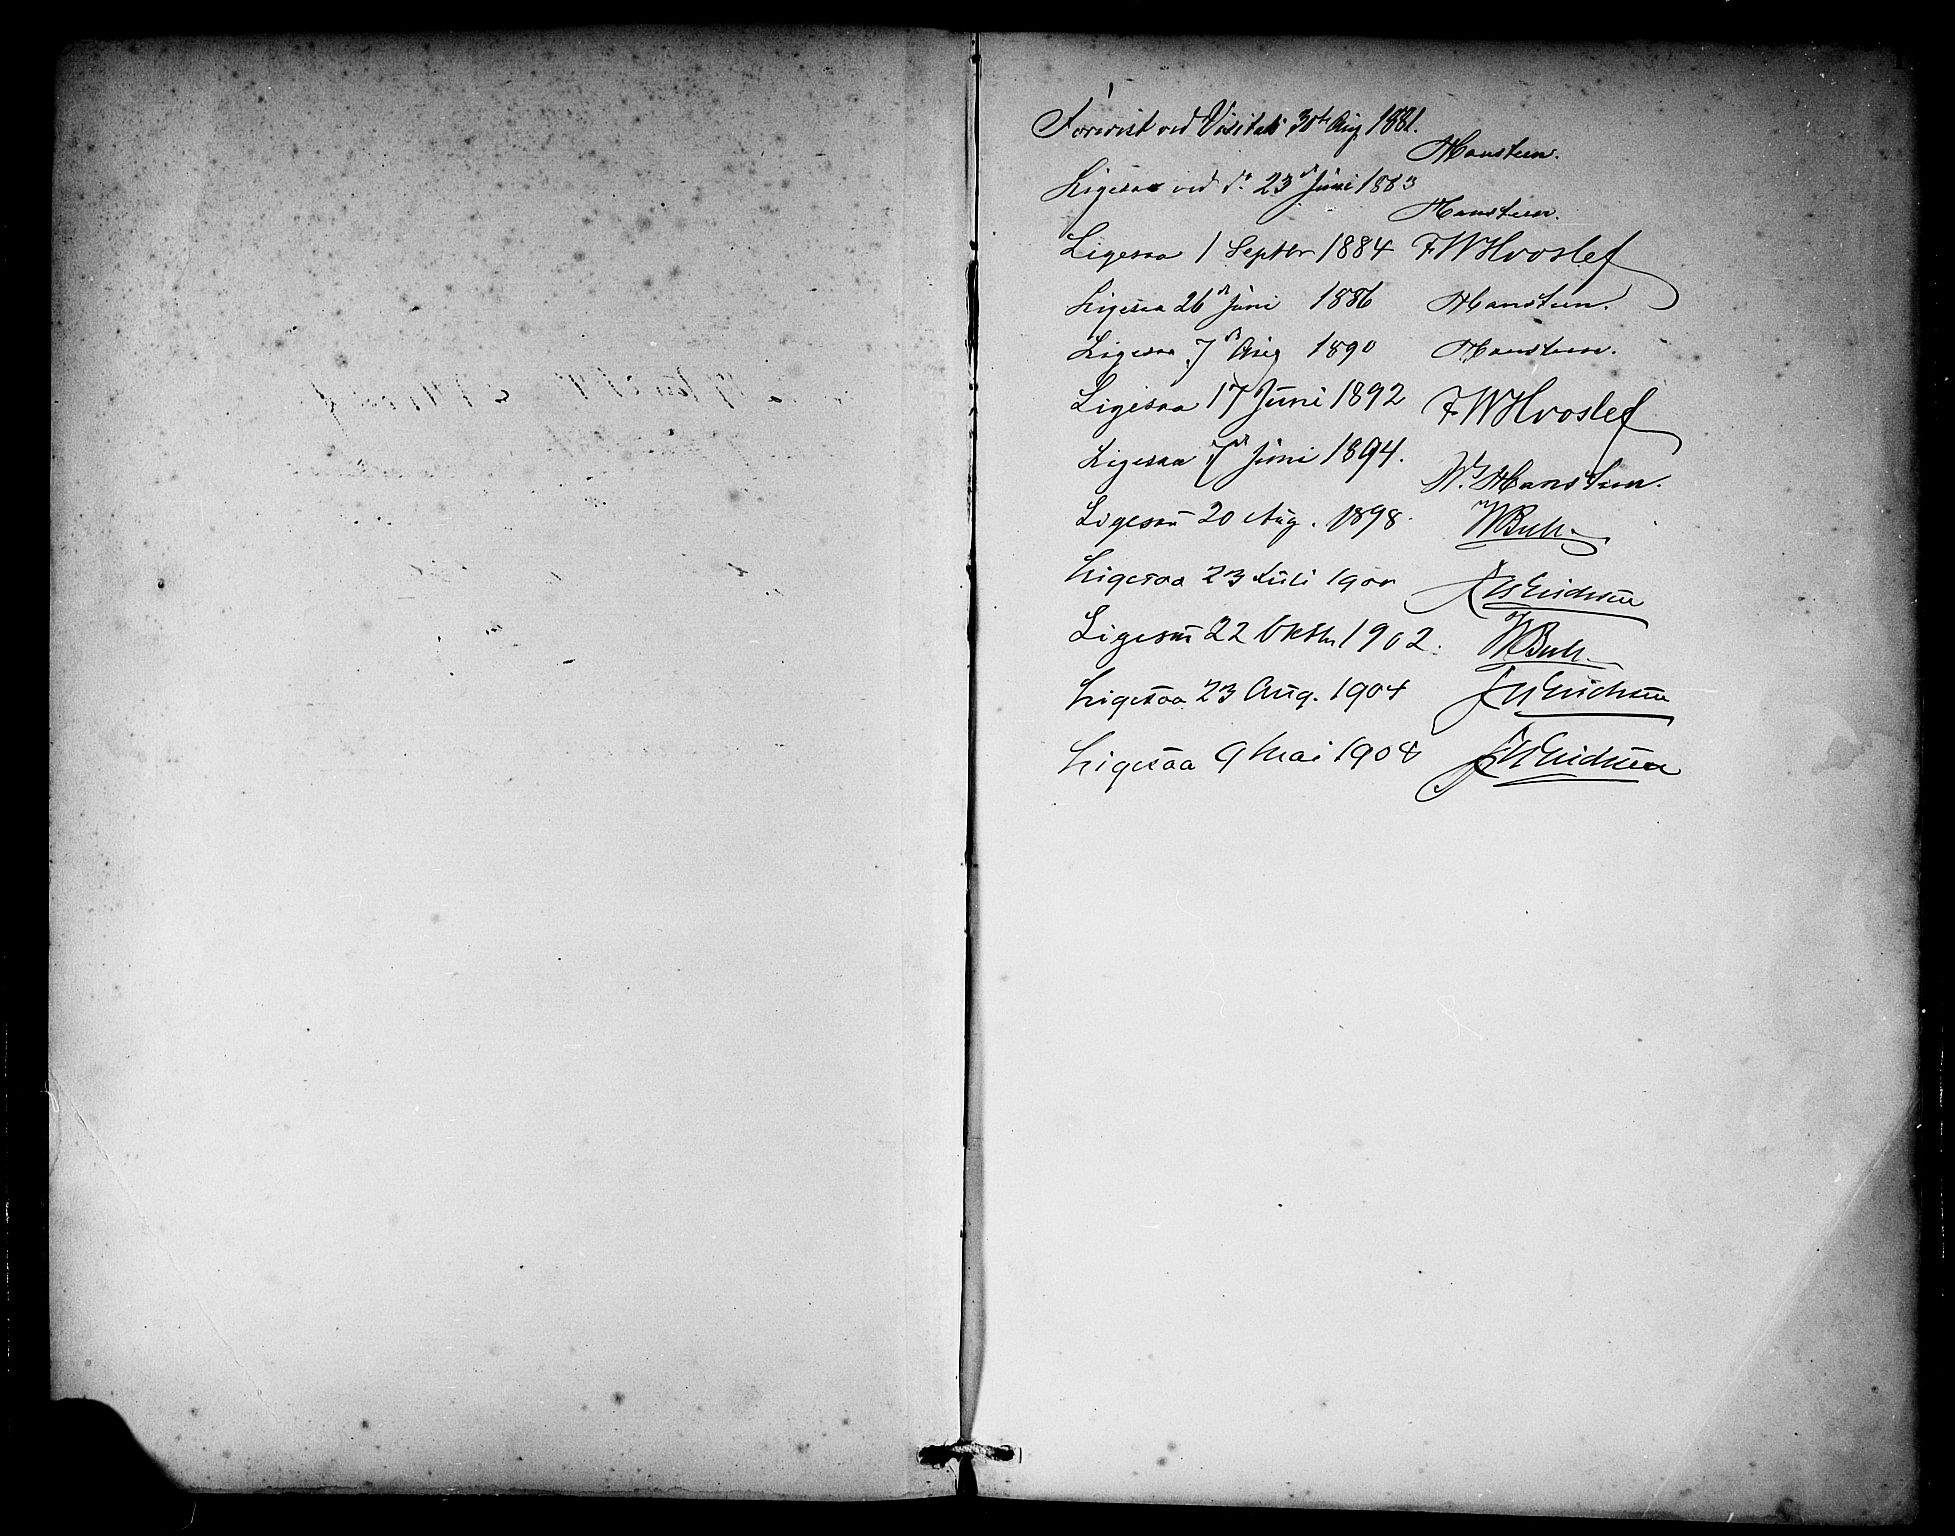 Forevist ved Visitats 30te Aug 1881.
Hansteen.
Ligesaa ved do. 23de Juni 1883
Hansteen.
Ligesaa 1 Septbr 1884 FWHvoslef
Ligesaa 26de Juni 1886 Hansteen.
Ligesaa 7de Aug 1890 Hansteen.
Ligesaa 17 Juni 1892 FWHvoslef
Ligesaa 7de Juni 1894.
W. Hansteen.
Ligesaa 20 Aug. 1898. Buch.
Ligesaa 23 Juli 1900
Ligesaa 22 Oktbr 1902. Buch.
Ligesaa 23 Aug. 1904
Ligesaa 9 Mai 1908